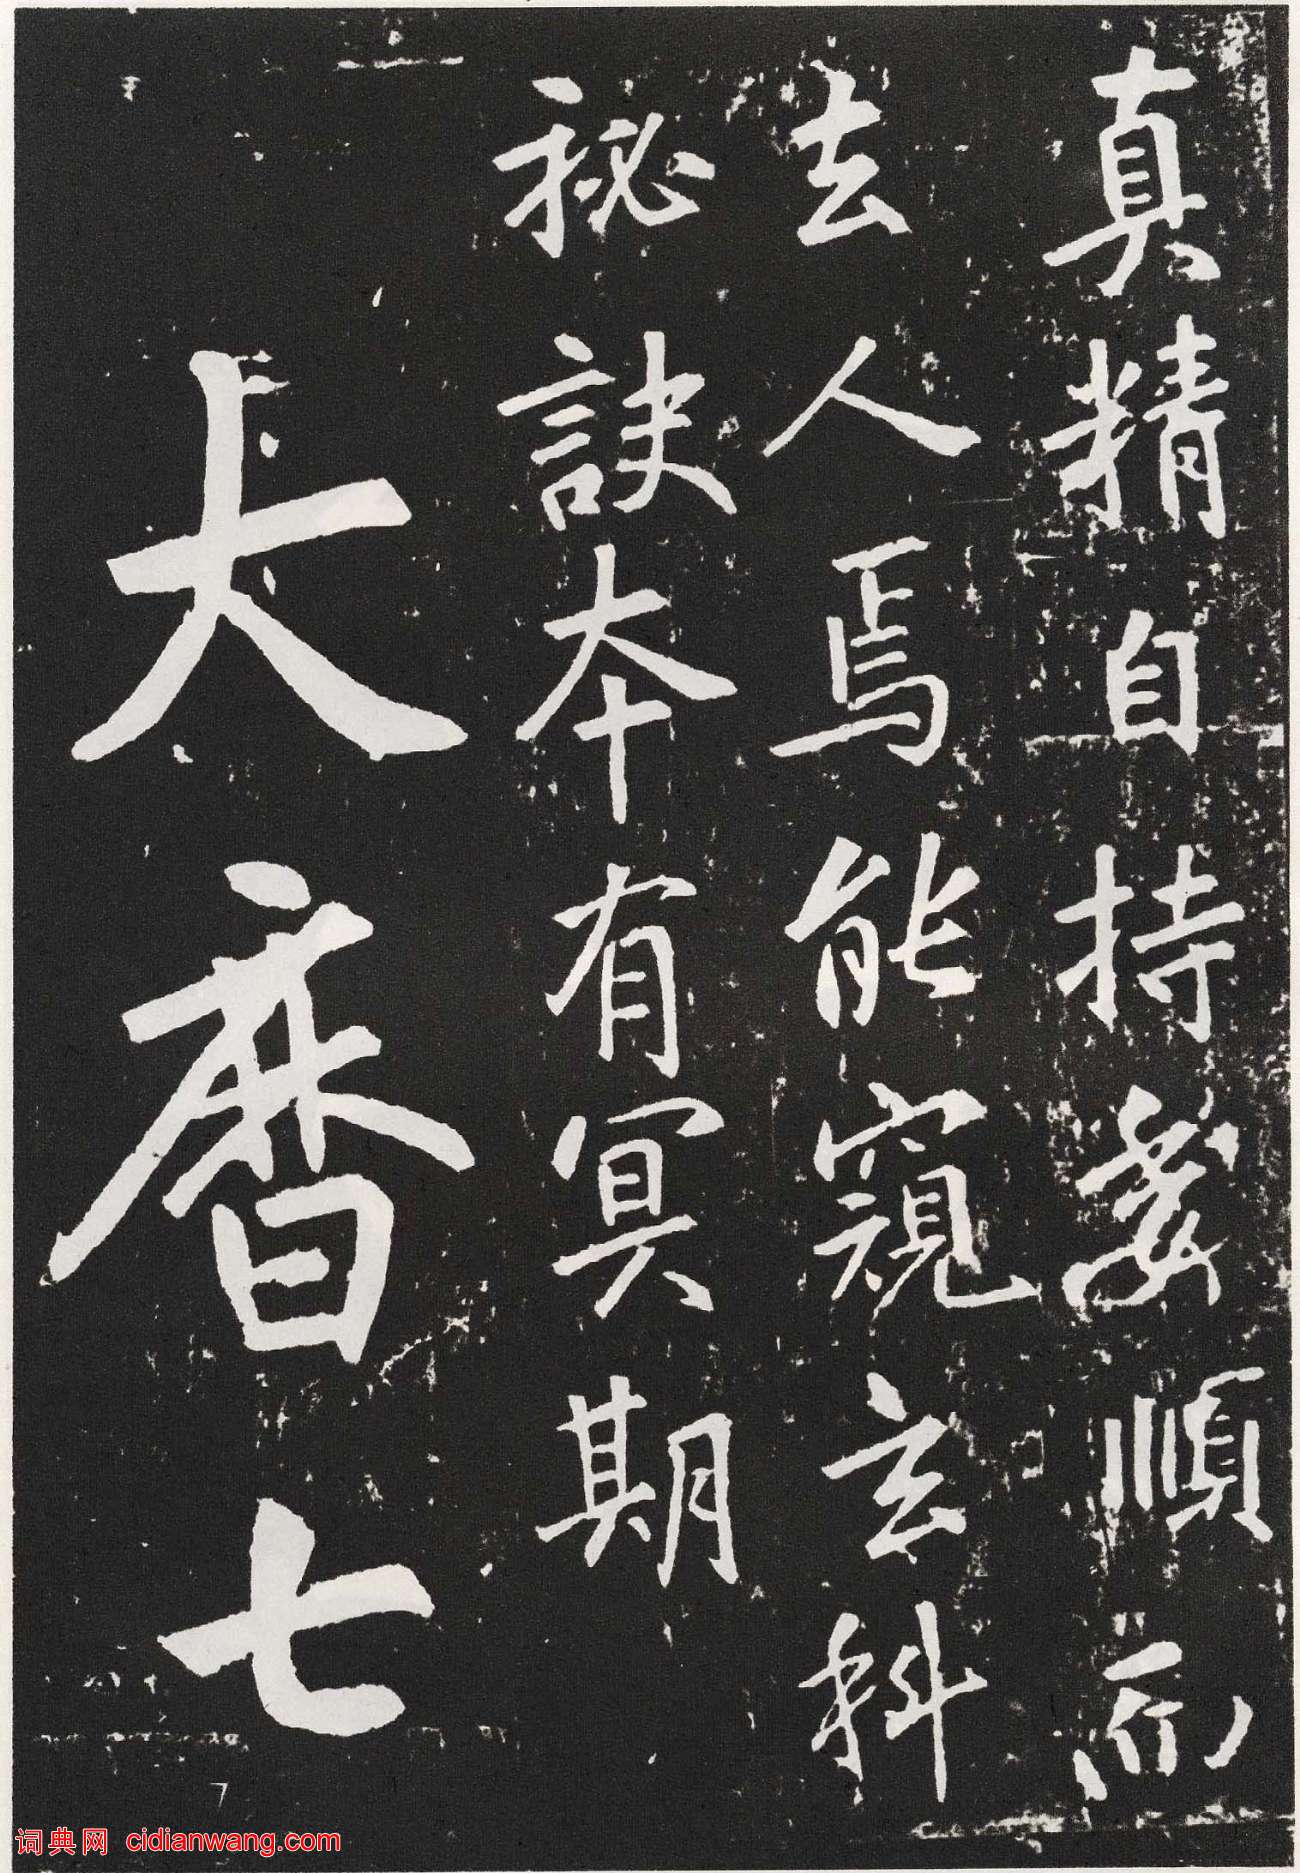 真精自持委順而
去人焉能窺玄科
祕訣本有冥期
大曆七
词典网 cidianwang.com